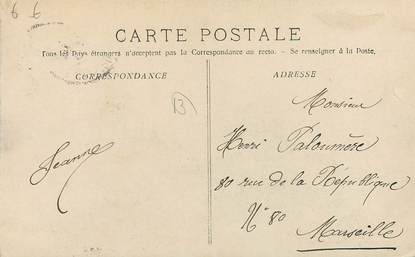 6 6
CARTE POSTALE
Tous les Pays étrangers n'acceptent pas la Correspondance au recto. - Se renseigner à la Poste.
CORRESPONDANCE
ADRESSE
B
Jeanne
Monsieur
Henri Paloumère
80 rue de la République
N° 80
Marseille